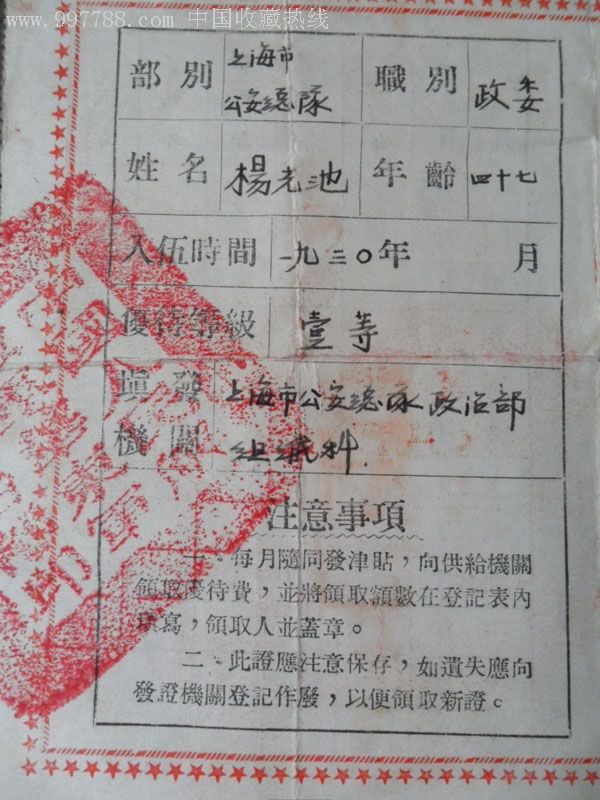 www.997788.com 中国收藏热线
部別 上海市公安總隊 職別 政委
姓名 楊光池 年齡 四十七
入伍時間 一九三〇年 月
優待等級 壹等
填發機關 上海市公安總隊政治部
组織科.
注意事項
一、每月隨同發津貼，向供給機關
領取優待費，並將領取額數在登記表內
填寫，領取人並蓋章。
二、此證應注意保存，如遺失應向
發證機關登記作廢，以便領取新證。